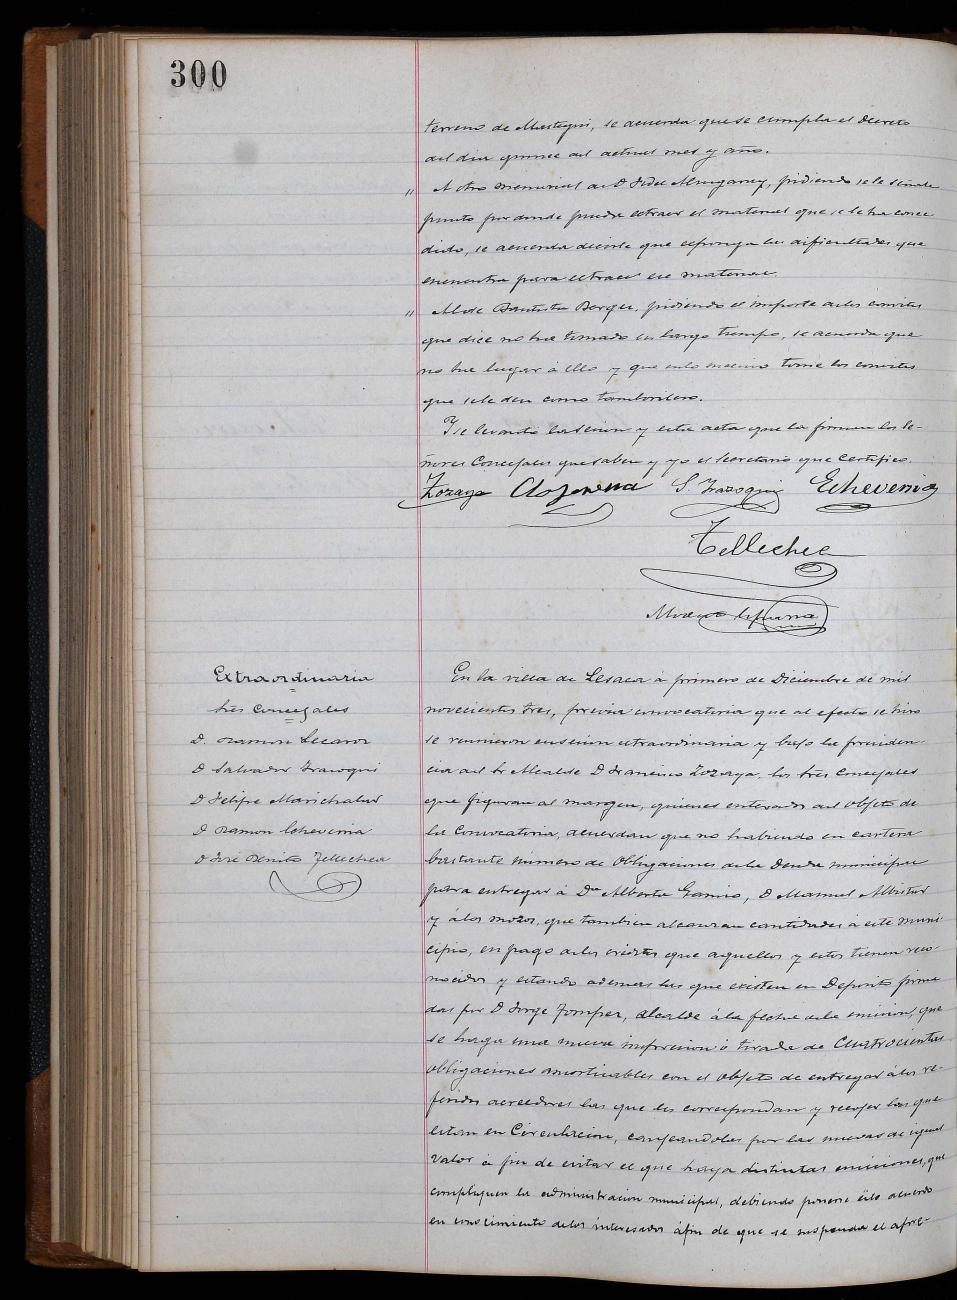 300
terreno de Mastegui, se acuerda que se cumpla el Decreto
del dia quince del actual mes y año.
" A otro memorial de D. Fidel, pidiendo se le señale
punto por donde puede extraer el material que se le ha conce
dido, se acuerda decirle que exponga las dificultades que
encuentra para extraer ese material.
" Al de Bautista Berger, pidiendo el importe de los convites
que dice no ha tomado en largo tiempo, se acuerda que
no ha lugar á ello y que en lo tome los convites
que se le den como tamborilero.
Y se levantó la sesion y esta acta que la firman los Se-
ñores Concejales que saben y yo el Secretario que certifico.
Zozaya S. Irazoqui Echeverria
Tellechea
Extraordinaria
tres Concejales
D. Ramon Lecaroz
D Salvador Irazoqui
D Felipe Marichalar
D Ramon Echeverria
D José Benito Tellechea
En la villa de Lesaca á primero de Diciembre de mil
novecientos tres, prévia convocatoria que al efecto se hizo
se reunieron en sesion extraordinaria y bajo la presiden
cia del Sr Alcalde D Francisco Zozaya, los tres Concejales
que figuran al margen, quienes enterados del objeto de
la Convocatoria, acuerdan que no habiendo en cartera
bastante número de Obligaciones de la Deuda municipal
para entregar á Dña Alberta Gamio, D Manuel Albistur
y á los mozos, que tambien alcanzan cantidades á este muni-
cipio, en pago de los créditos que aquellos y estos tienen reco-
nocidos y estando ademas las que existen en Deposito firma
das por D Jorge Jomper, alcalde á la fecha de la emision, que
se haga una nueva impresion ó tirada de Cuatrocientas
obligaciones amortizables con el objeto de entregar á los re-
feridos acreedores las que les correspondan y recojer las que
estan en Circulacion, canjeandolas por las nuevas de igual
valor á fin de evitar el que haya distintas emisiones, que
compliquen la administracion municipal, debiendo ponerse este acuerdo
en conocimiento de los interesados á fin de que se suspenda el apre-